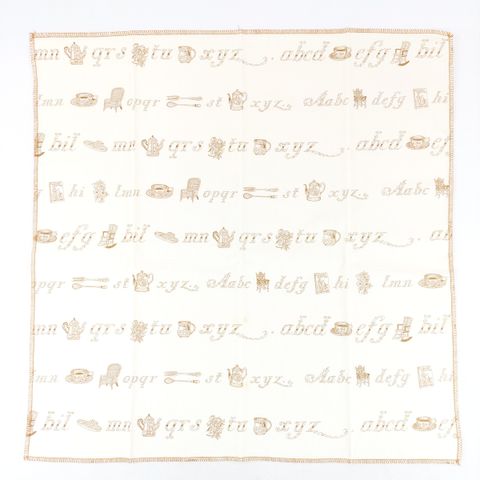 mn qrs tu xyz abcd efg bil
lmn opqr st xyz Aabc defg hi
bil mn qrs tu xyz abcd efg
hi lmn opqr st xyz Aabc
efg bil mn qrs tu xyz ab
opqr st xyz Aabc defg hi lmn
mn qrs tu xyz abcd efg bil
lmn opqr st xyz Aabc defg hi
bil mn qrs tu xyz abcd efg